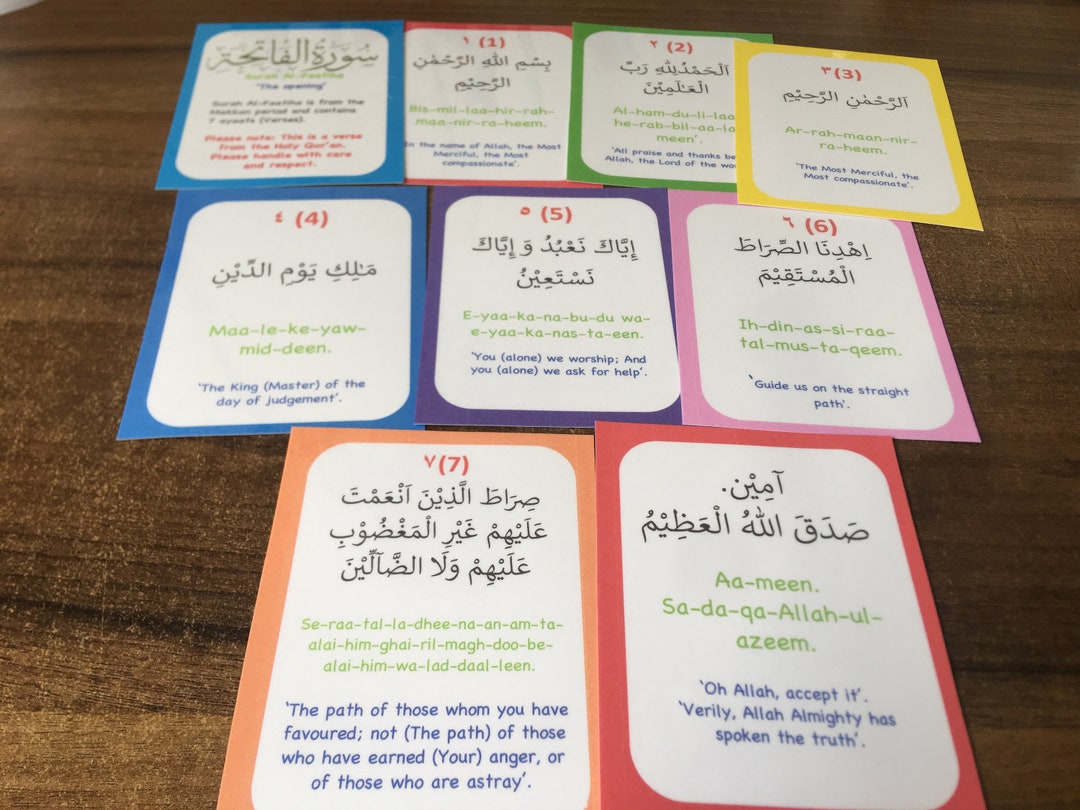 سُورَةُ الْفَاتِحَة
Surah Al-Faatiha
'The opening'
Surah Al-Faatiha is from the
Makkan period and contains
7 ayaats (Verses).
Please note: This is a verse
from the Holy Qur'an.
Please handle with care
and respect.
١ (1)
بِسْمِ اللهِ الرَّحْمٰنِ
الرَّحِيْمِ
Bis-mil-laa-hir-rah-
maa-nir-ra-heem.
In the name of Allah, the Most
Merciful, the Most
compassionate'.
٢ (2)
اَلْحَمْدُلِلّٰهِ رَبِّ
الْعَـٰلَمِيْنَ
Al-ham-du-li-laa
he-rab-bil-aa-la
meen'.
'All praise and thanks be
Allah, the Lord of the
٣ (3)
اَلرَّحْمٰنِ الرَّحِيْمِ
Ar-rah-maan-nir-
ra-heem.
'The Most Merciful, the
Most compassionate'.
٤ (4)
مَـٰلِكِ يَوْمِ الدِّيْنِ
Maa-le-ke-yaw-
mid-deen.
'The King (Master) of the
day of judgement'.
٥ (5)
إِيَّاكَ نَعْبُدُ وَ إِيَّاكَ
نَسْتَعِيْنُ
E-yaa-ka-na-bu-du wa-
e-yaa-ka-nas-ta-een.
'You (alone) we worship; And
you (alone) we ask for help'.
٦ (6)
اِهْدِنَا الصِّرَاطَ
الْمُسْتَقِيْمَ
Ih-din-as-si-raa-
tal-mus-ta-qeem.
'Guide us on the straight
path'.
٧ (7)
صِرَاطَ الَّذِيْنَ اَنْعَمْتَ
عَلَيْهِمْ غَيْرِ الْمَغْضُوْبِ
عَلَيْهِمْ وَلَا الضَّآلِّيْنَ
Se-raa-tal-la-dhee-na-an-am-ta-
alai-him-ghai-ril-magh-doo-be-
alai-him-wa-lad-daal-leen.
'The path of those whom you have
favoured; not (The path) of those
who have earned (Your) anger, or
of those who are astray'.
آمِيْن.
صَدَقَ اللهُ الْعَظِيْمُ
Aa-meen.
Sa-da-qa-Allah-ul-
azeem.
'Oh Allah, accept it'.
'Verily, Allah Almighty has
spoken the truth'.